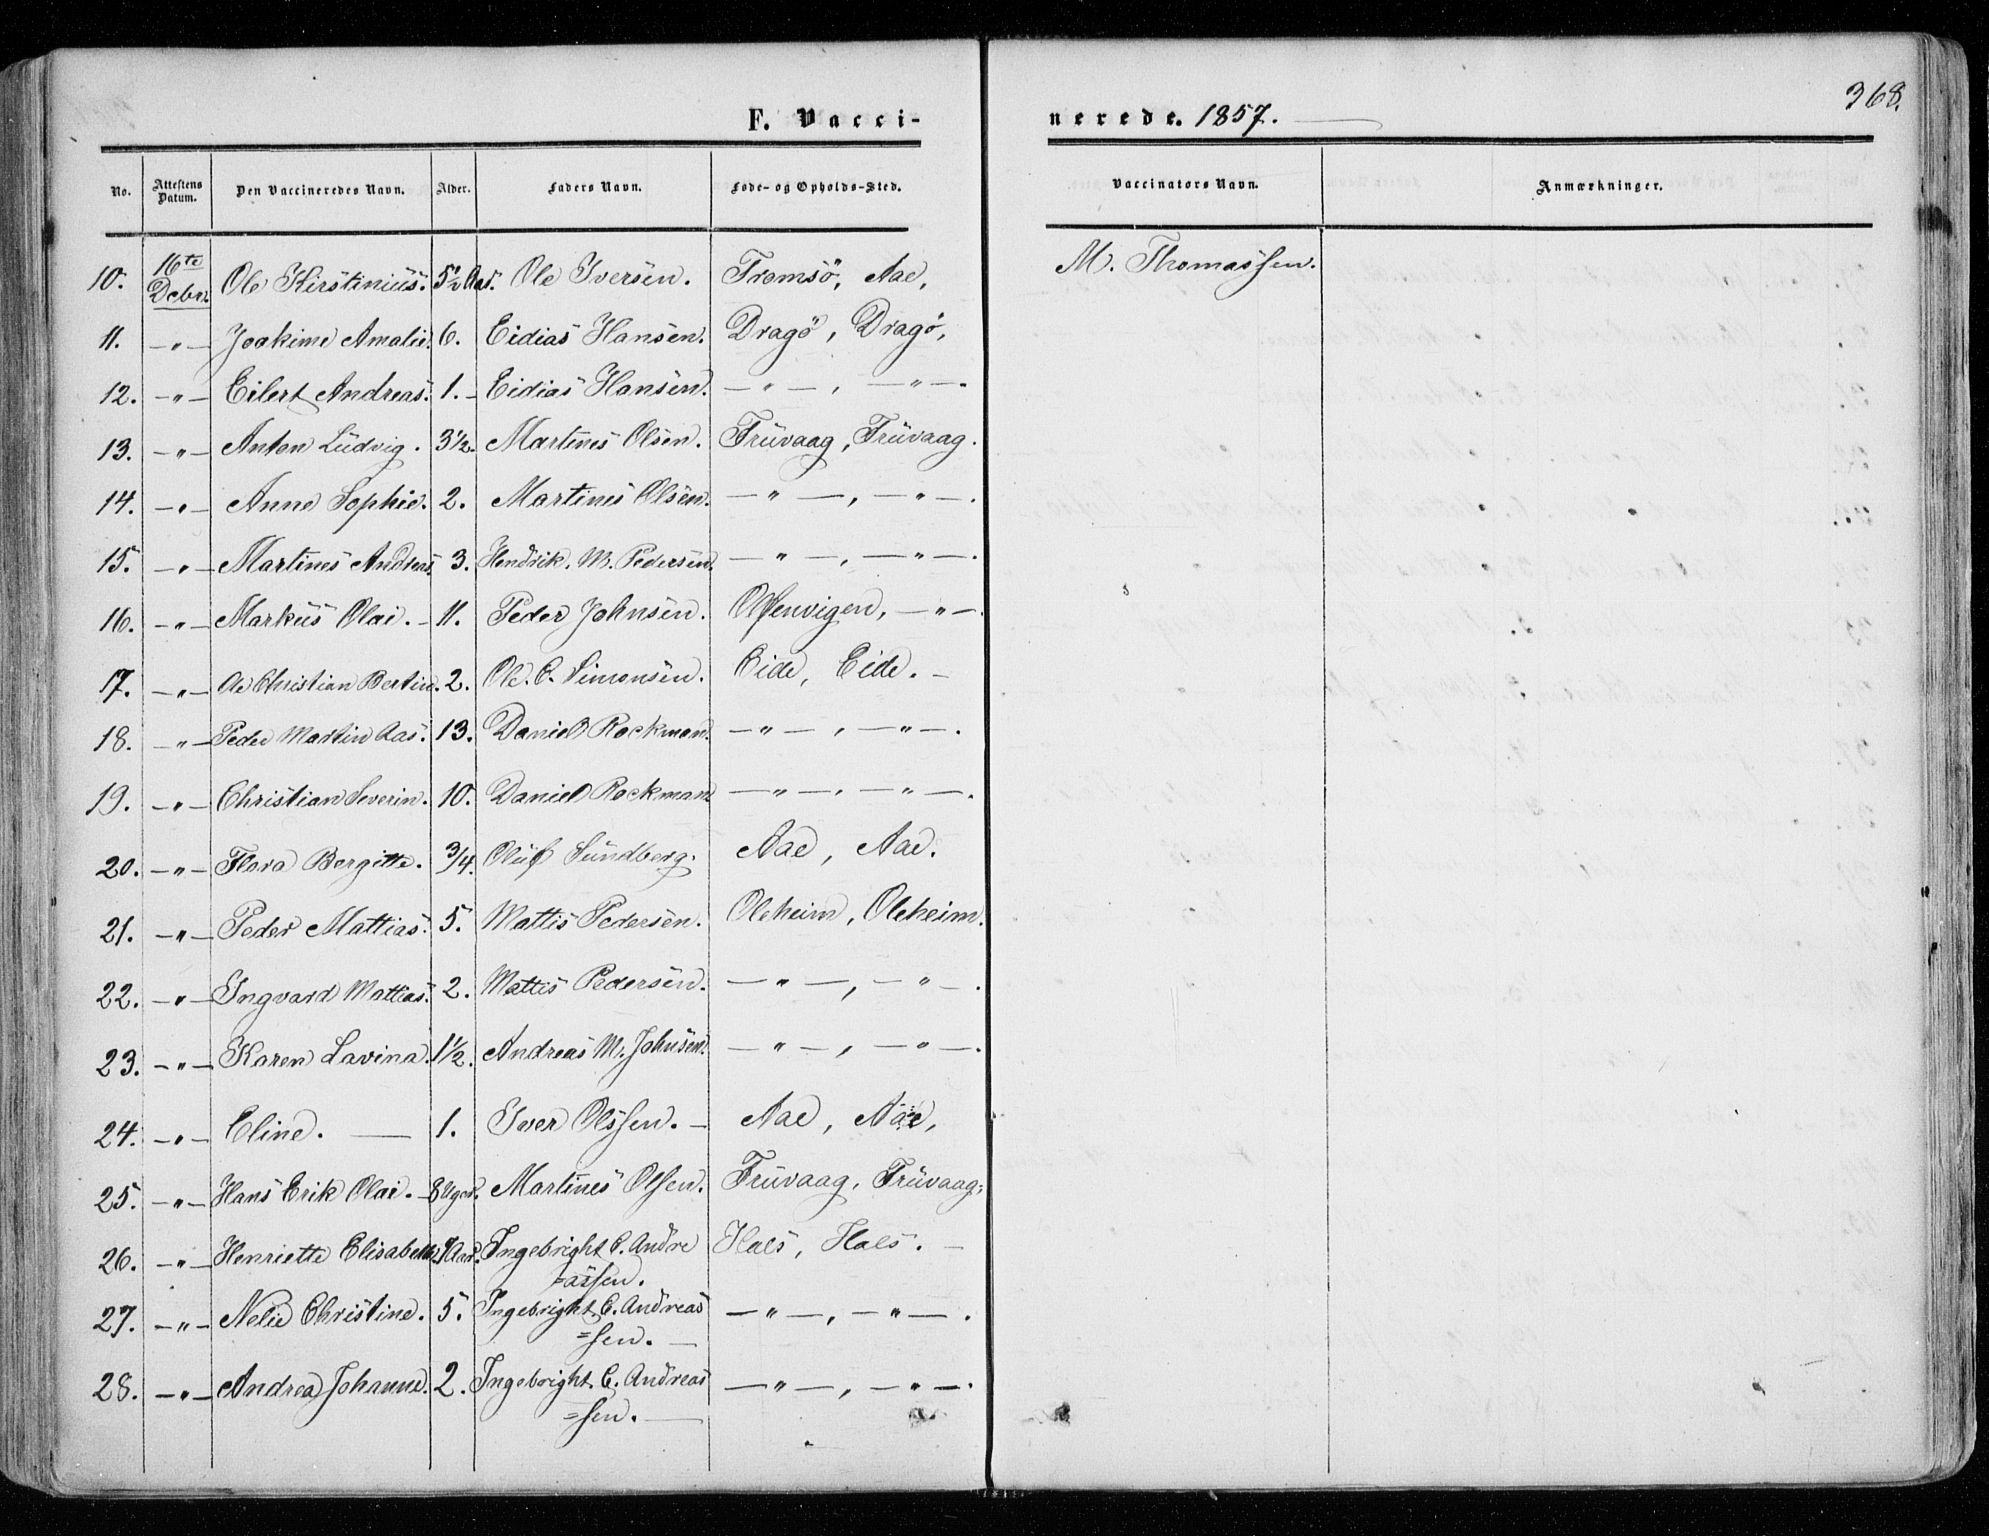 368.
F. Vacci-nerede. 1857.
No. Attestens Datum. Den Vaccineredes Navn. Alder. Faders Navn. Føde- og Opholds-Sted. Vaccinators Navn. Anmærkninger.
10. 16te Debr. Ole Kirstinius. 5½ Aar. Ole Iversen. Tromsö, Aae, M. Thomassen.
11. —"— Joakime Amalie. 6. Eidias Hansen. Dragö, Dragö,
12. —"— Eilert Andreas. 1. Eidias Hansen. —"—, —"—.
13. —"— Anton Ludvig. 3½. Martines Olsen. Truvaag, Truvaag.
14. —"— Anne Sophie. 2. Martines Olsen. —"—, —"—.
15. —"— Martines Andreas. 3. Hendrik. M. Pedersen. —"—, —"—.
16. —"— Markus Olai. 11. Peder Johnsen. —"—.
17. —"— Ole Christian Bertin. 2. Ole. C. Simonsen. Eide, Eide.
18. —"— Peder Martin Aas. 13. Daniel Rockman. —"—, —"—.
19. —"— Christian Severin. 10. Daniel Rockman. —"—, —"—.
20. —"— Flora Bergitte. 3/4. Oluf Sundberg. Aae, Aae.
21. —"— Peder Mattias. 5. Mattis Pedersen. Oleheim, Oleheim.
22. —"— Ingvard Mattias. 2. Mattis Pedersen. —"—, —"—.
23. —"— Karen Lavina. 1½. Andreas M. Johnsen. —"—, —"—.
24. —"— Eline. — 1. Iver Olssen. Aae, Aae,
25. —"— Hans Erik Olai. 8 Uger. Martines Olsen. Truvaag, Truvaag,
26. —"— Henriette Elisabeth. Aar. Ingebright C. Andre Hals, Hals.
=assen.
27. —"— Nelie Christine. 5. Ingebright C. Andreas —"—, —"—.
=sen.
28. —"— Andrea Johanne. 2. Ingebright. C. Andreas —"—, —"—.
=sen.